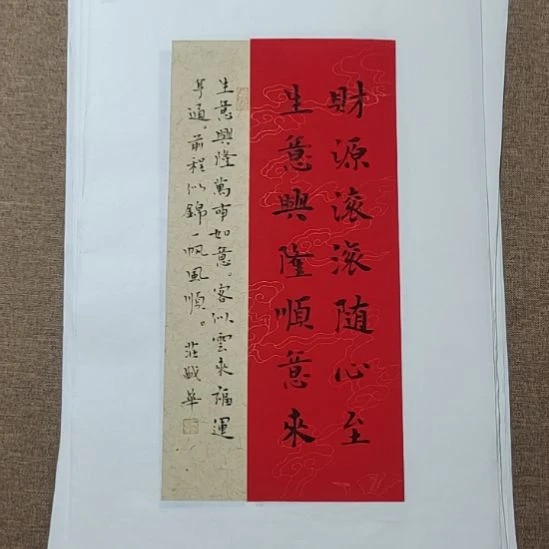 財源滾滾隨心至
生意興隆順意來
生意興隆萬事如意。客似雲來福運
亨通。前程似錦一帆風順。莊
華